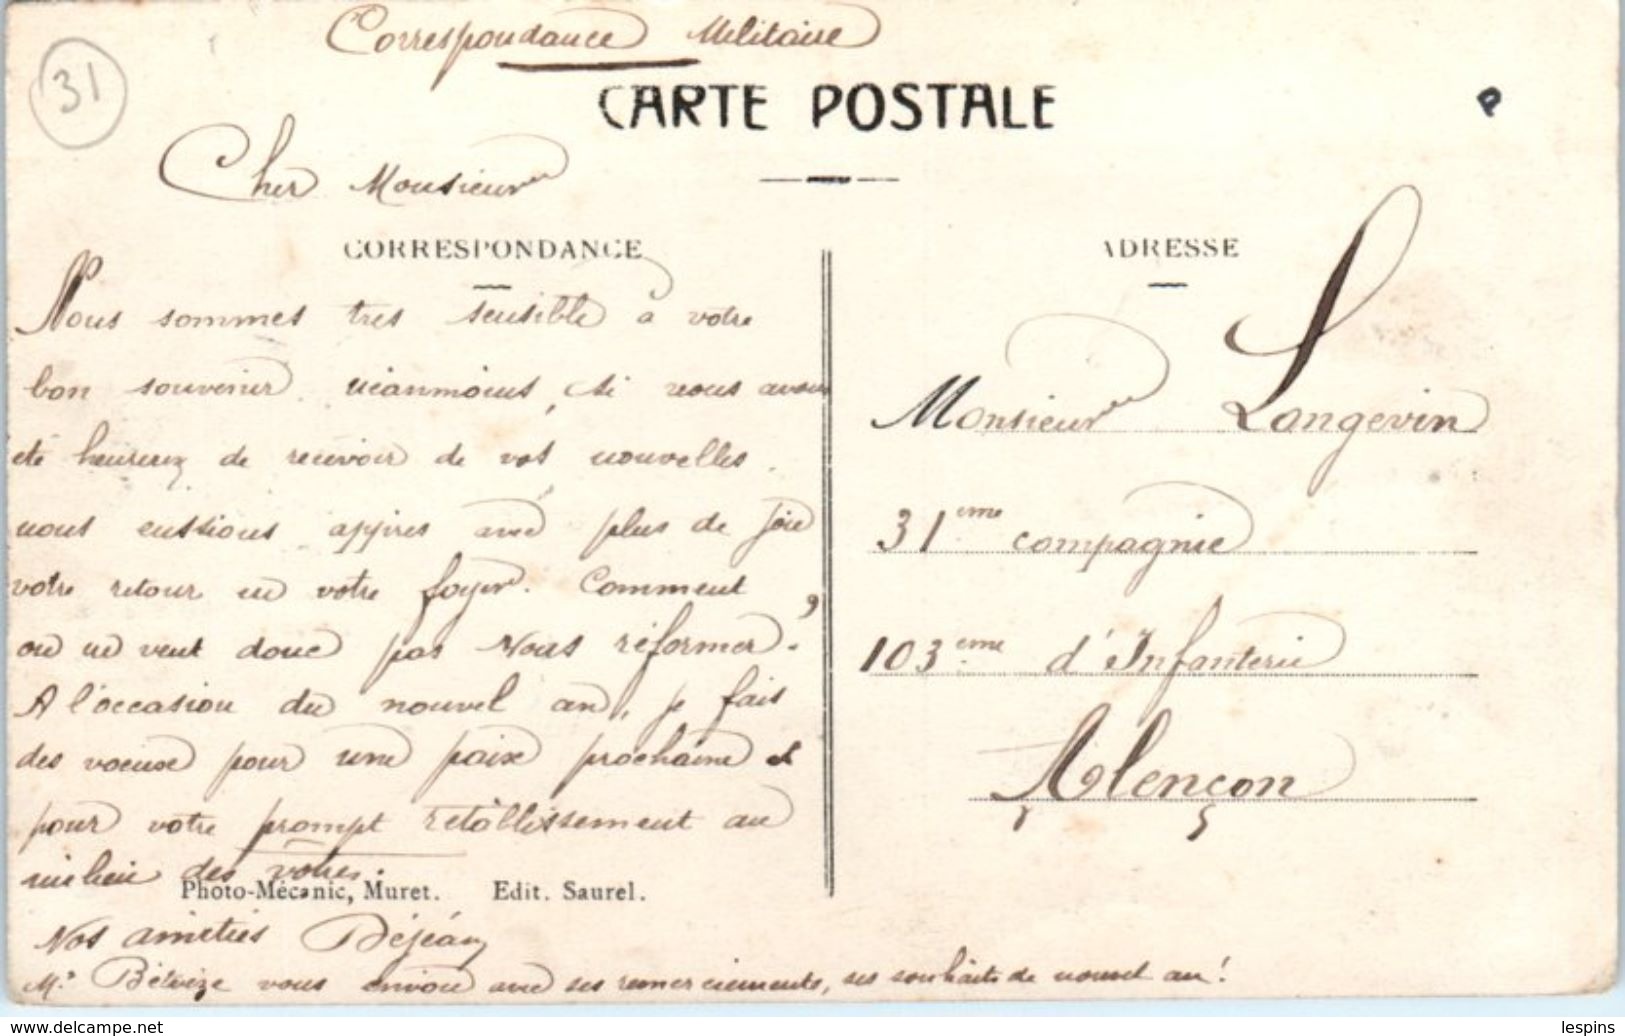 Correspondance Militaire
31
CARTE POSTALE
P
Cher Monsieur
CORRESPONDANCE
Nous sommes tres sensible à votre
bon souvenir néanmoins, si nous avons
été heureux de recevoir de vos nouvelles
nous eussions appris avec plus de joie
votre retour en votre foyer. Comment,
on ne veut donc pas vous réformer.
A l'occasion du nouvel an, je fais
des voeuxe pour une paixe prochaine et
pour votre prompt retablissement au
milieu des votres.
Photo-Mécanic, Muret. Edit. Saurel.
Nos amitiés Déjéan
Mr. Bélvèze vous envoie avec ses remerciements, ses souhaits de nouvel an!
ADRESSE
Monsieur Langevin
31eme compagnie
103eme d'Infanterie
Alençon
delcampe.net
lespins